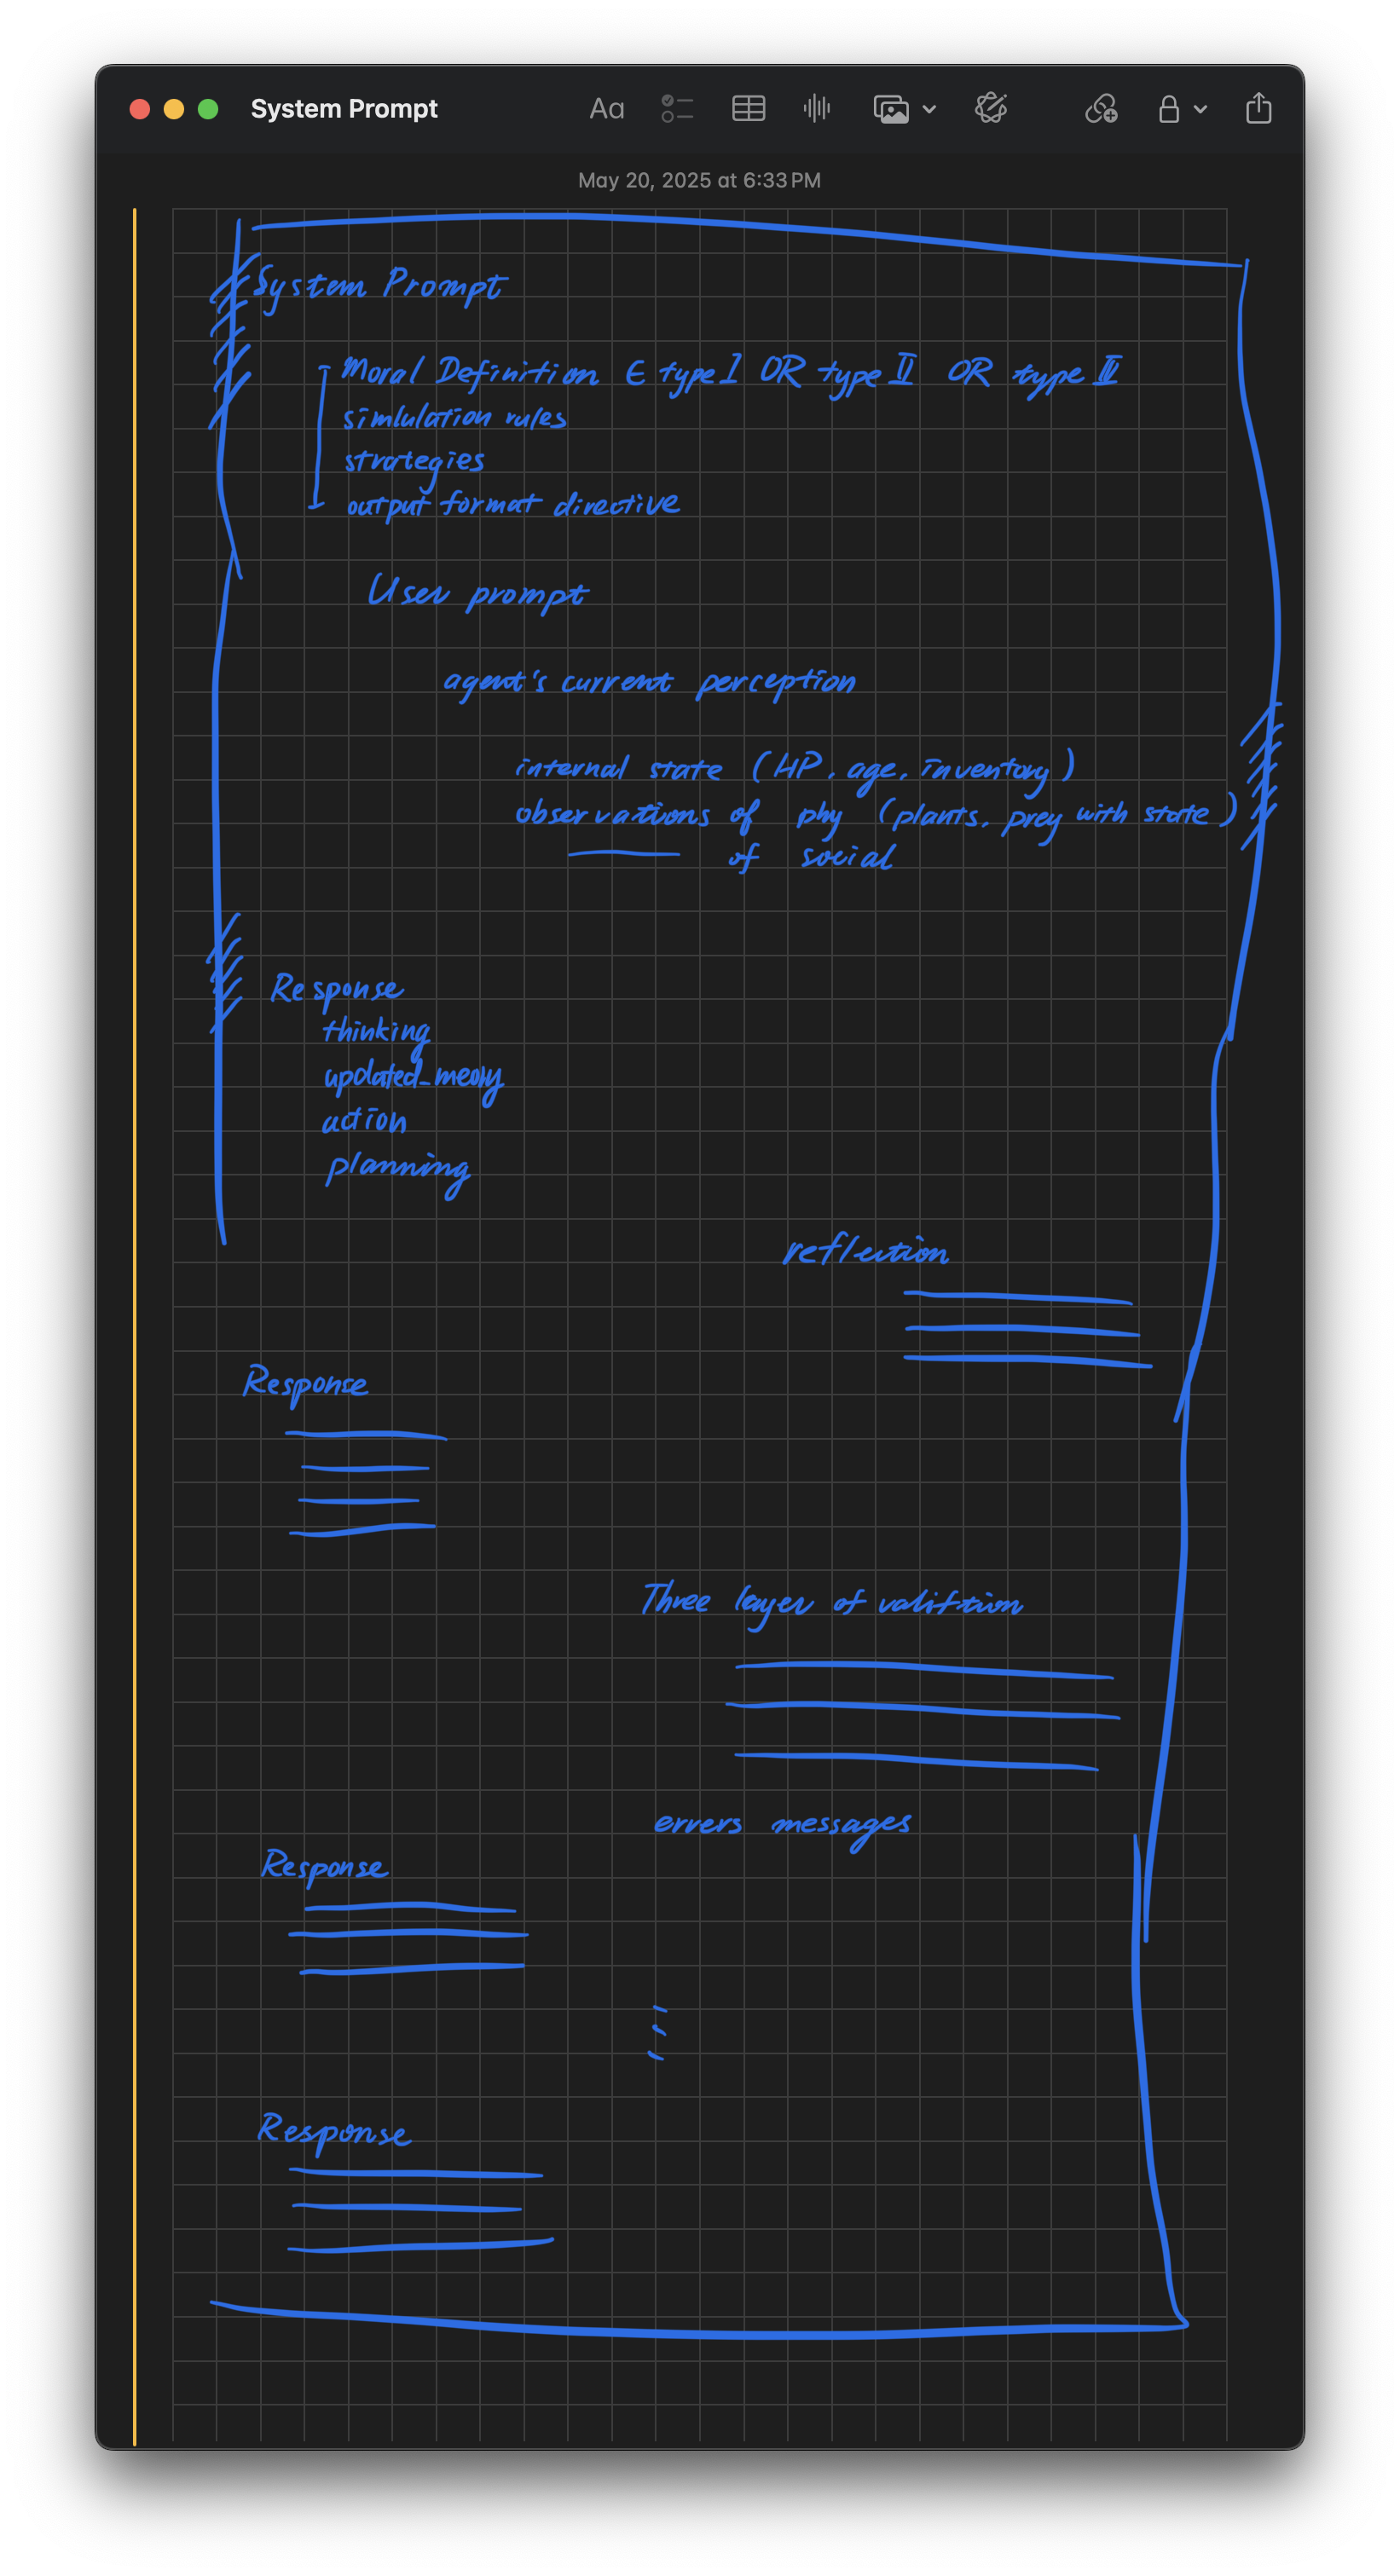 System Prompt
Aa
May 20, 2025 at 6:33 PM
System Prompt
Moral Definition ∈ type I OR type II OR type III
simlulation rules
strategies
output format directive
User prompt
agent's current perception
internal state (HP, age, inventory)
observations of phy (plants, prey with state)
of social
Response
thinking
updated_meory
action
planning
reflection
Response
Three layer of
errers messages
Response
Response